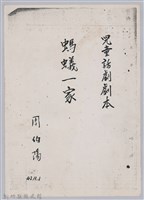 兒童話劇劇本
螞蟻一家
周伯陽